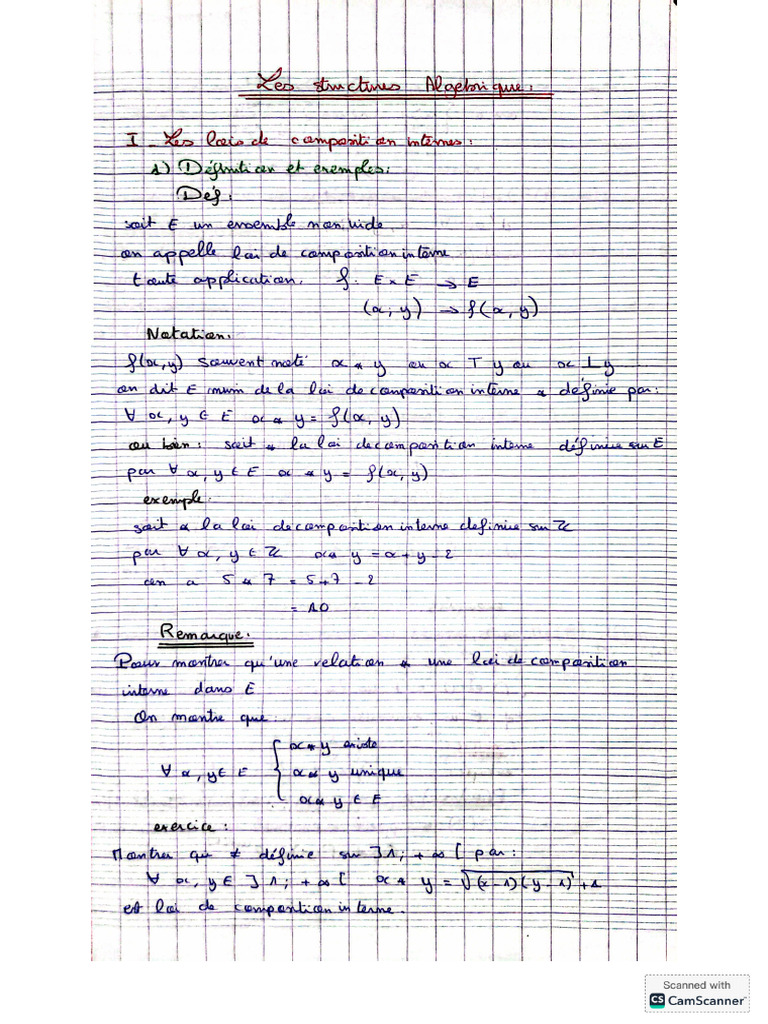 Les structures Algebrique:
I - Les lois de composition internes:
1) Définition et exemples:
Déf:
soit E un ensemble non vide
on appelle loi de composition interne
toute application. f: E × E → E
(x; y) → f(x, y)
Notation.
f(x,y) souvent noté x * y ou x T y ou x ⊥ y
on dit E muni de la loi de composition interne * définie par:
∀ x, y ∈ E x * y = f(x, y)
ou bien: soit * la loi de composition interne définie sur E
par ∀ x, y ∈ E x * y = f(x, y)
exemple.
soit * la loi de composition interne definie sur ℤ
par ∀ x, y ∈ ℤ x * y = x + y - 2
on a 5 * 7 = 5 + 7 - 2
= 10
Remarque.
Pour montrer qu'une relation * une loi de composition
interne dans E
On montre que:
∀ x, y ∈ E { x * y existe
x * y unique
x * y ∈ E
exercice:
Montrer qu * définie sur ]1; +∞[ par:
∀ x, y ∈ ]1; +∞[ x * y = √(x-1)(y-1) + 1
est loi de composition interne.
Scanned with
CS CamScanner